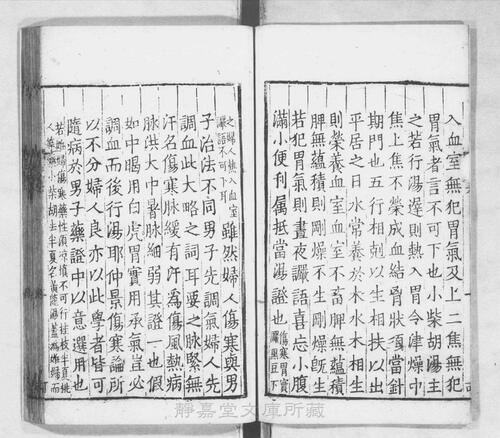 入血室無犯胃氣及上二焦無犯
胃氣者言不可下也小柴胡湯主
之若行湯遲則熱入胃令津燥中
焦上焦不榮成血結胷狀須當針
期門也五行相剋以生相扶以出
平居之日水常養於木水木相生
則榮養血室血室不畜脾無蘊積
脾無蘊積則剛燥不生剛燥旣生
若犯胃氣則晝夜譫語喜忘小腹
滿小便利屬抵當湯證也傷寒胃實
譫語宜下
之婦人熱入血室
譫語不可下耳雖然婦人傷寒與男
子治法不同男子先調氣婦人先
調血此大略之詞耳要之脉緊無
汗名傷寒脉緩有汗爲傷風熱病
脉洪大中暑脉細弱其證一也假
如中暍用白虎胃實用承氣豈必
調血而後行湯耶仲景傷寒論所
以不分婦人良亦以此學者皆可
隨病於男子藥證中以意選用也
靜嘉堂文庫所藏